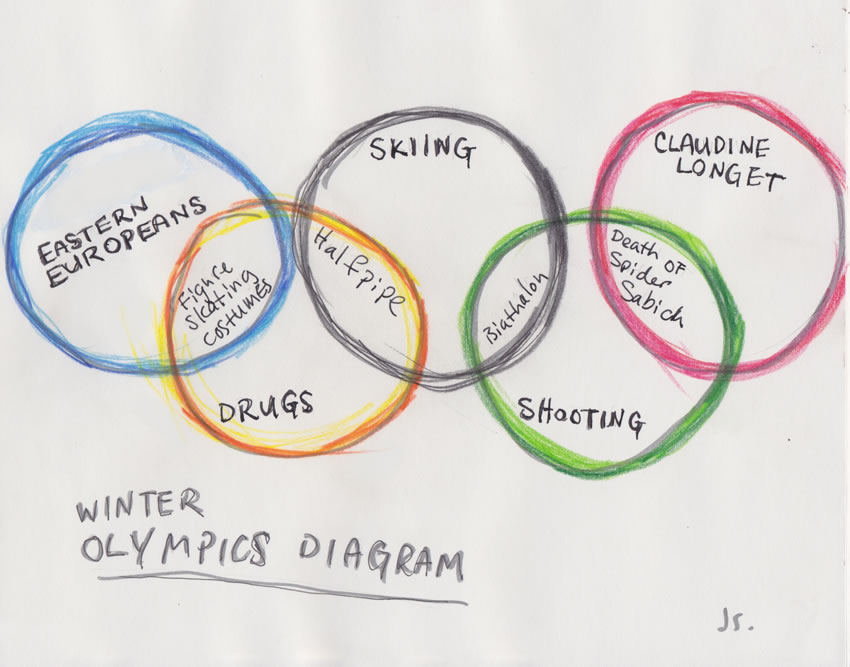 SKIING
CLAUDINE
LONGET
EASTERN
EUROPEANS
Figure
skating
costumes
Halfpipe
Biathalon
Death of
Spider
Sabich
DRUGS
SHOOTING
WINTER
OLYMPICS DIAGRAM
Js.